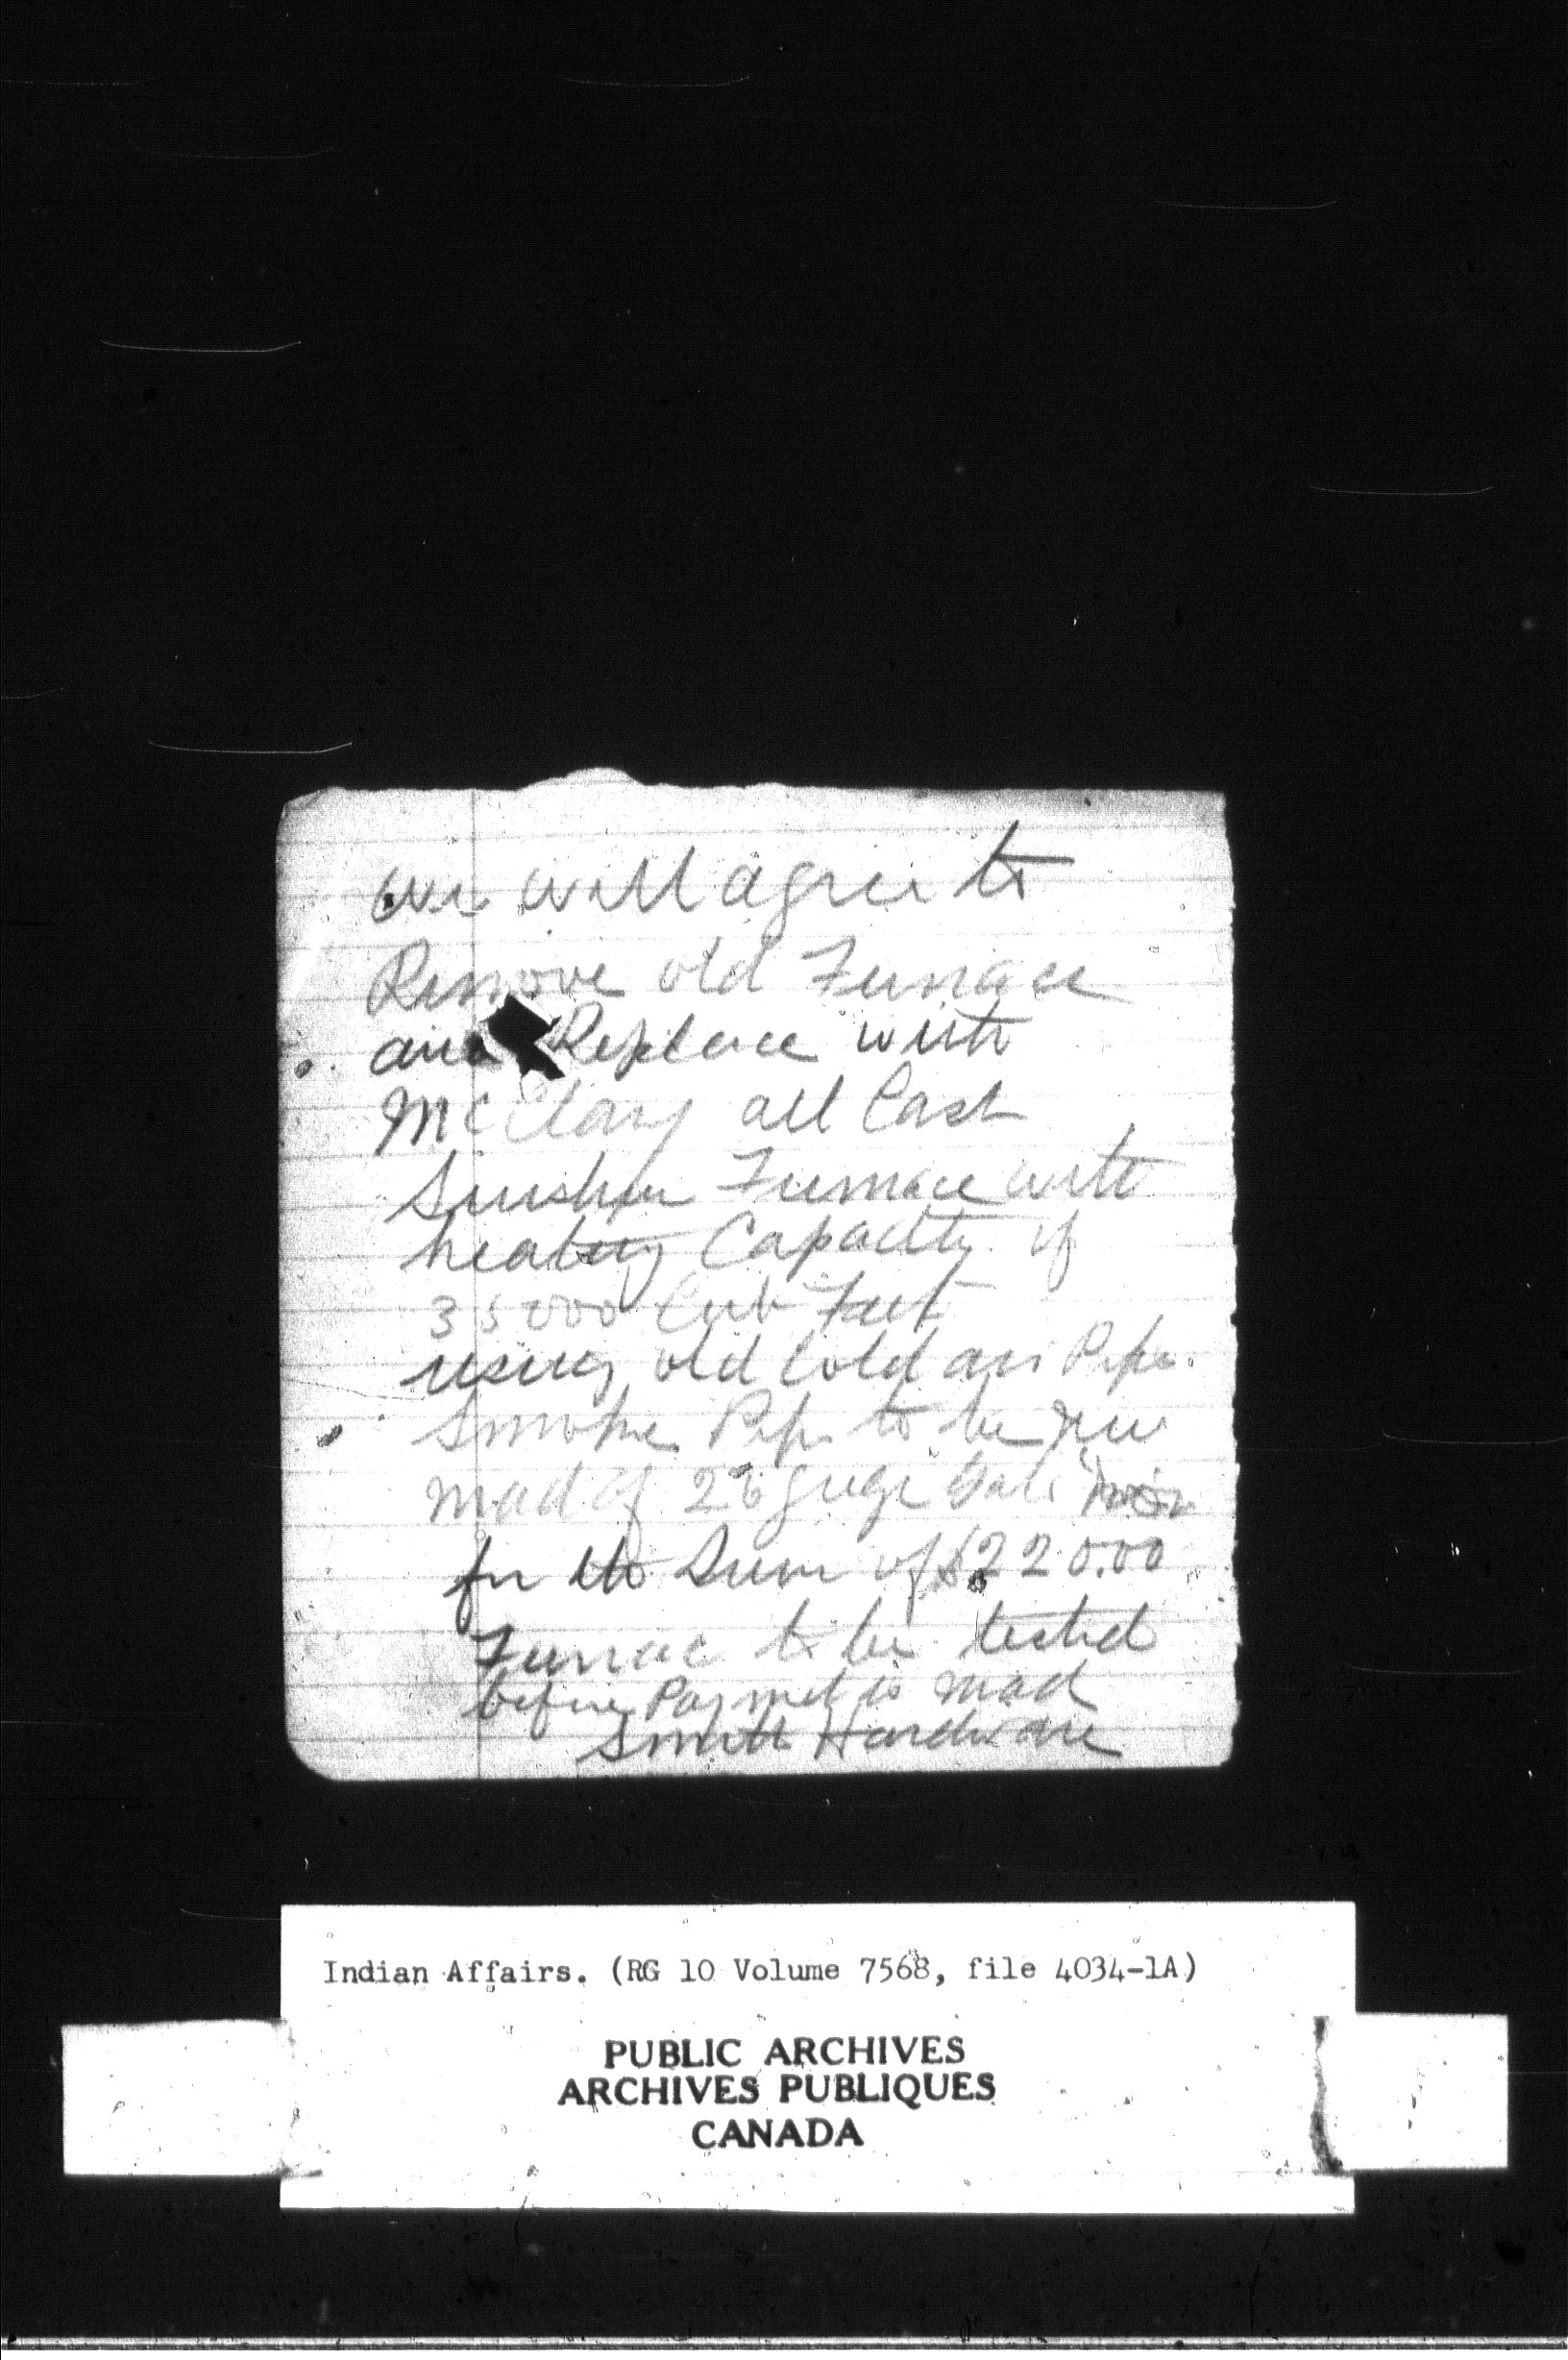 we will agree to
Remove old Furnace
and Replace with
McClary all Cast
Sunshine Furnace with
heating Capacity of
35000 Cub Feet
using old Cold air Pipe.
Smoke Pipe to be New
mad of 26 guge Gal
for the Sum of $220.00
Furnac to be tested
before Paymet is mad
Smith Hardware
Indian Affairs. (RG 10 Volume 7568, file 4034-1A)
PUBLIC ARCHIVES
ARCHIVES PUBLIQUES
CANADA